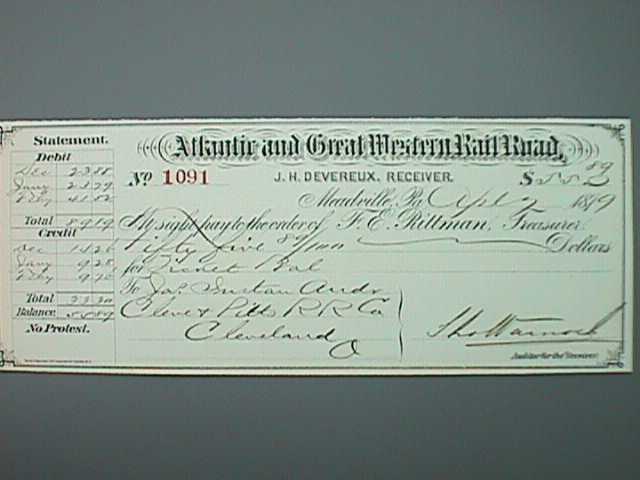 Statement.
Debit
Dec 23 88
Jany 23 79
Feby 41 52
Total 89 19
Credit
Dec 14 26
Jany 9 28
Feby 9 76
Total 33 30
Balance 55 89
No Protest.
Atlantic and Great Western Rail Road,
No 1091 J. H. DEVEREUX, RECEIVER. $55 89
Meadville, Pa. Apl 1879
At sight pay to the order of F. E. Rittman, Treasurer.
Fifty five 89/100 Dollars
for Ticket Bal
To Jas. Auds
Cleve & Pitts R R Co
Cleveland
O
Tho Warnock
Auditor for the Receiver.